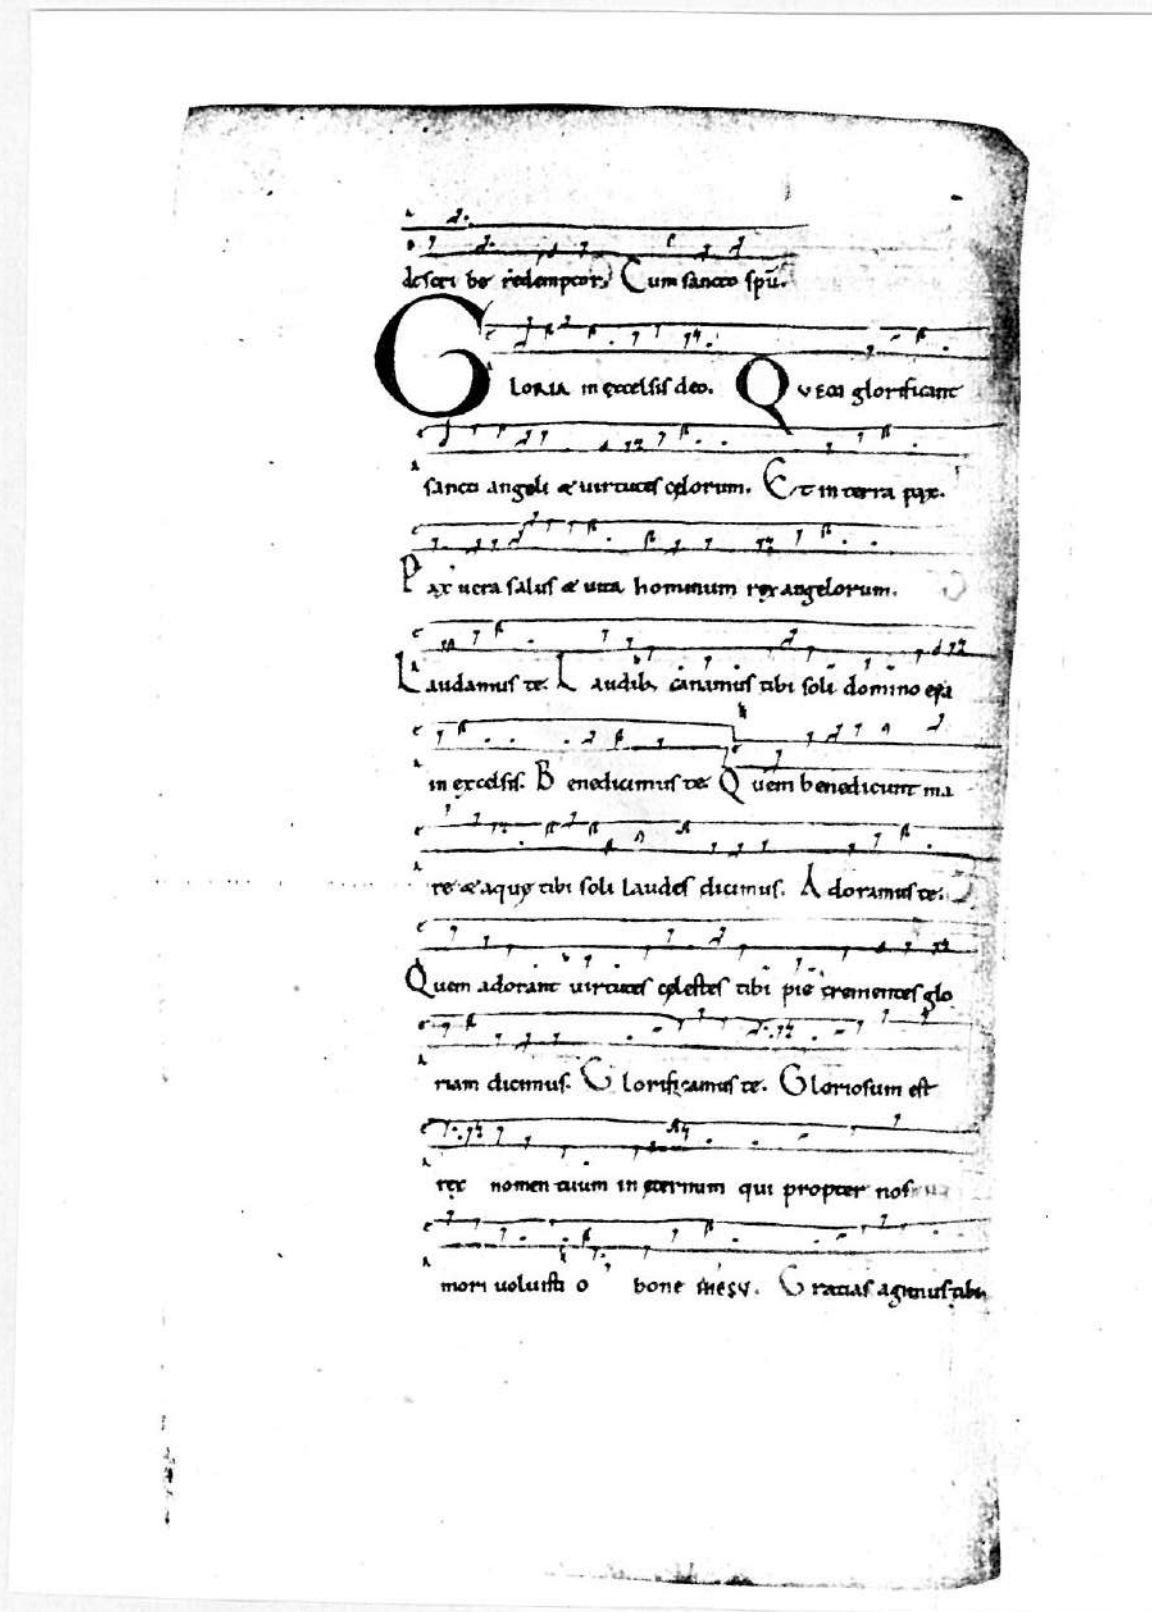 redemptor. Cum sancto spu.
GLORIA in excelsis deo. QVEM glorificant
sancti angeli & uirtutes cęlorum. Et in terra pax.
Pax uera salus & uita hominum rex angelorum.
Laudamus te. Laudib; canamus tibi soli domino
in excelsis. Benedicimus te. Quem benedicunt ma
re & aquę tibi soli laudes dicimus. Adoramus te.
Quem adorant uirtutes cęlestes tibi pie trementes glo
riam dicimus. Glorificamus te. Gloriosum est
rex nomen tuum in ęternum qui propter nos
mori uoluisti o bone Gratias agimus tibi